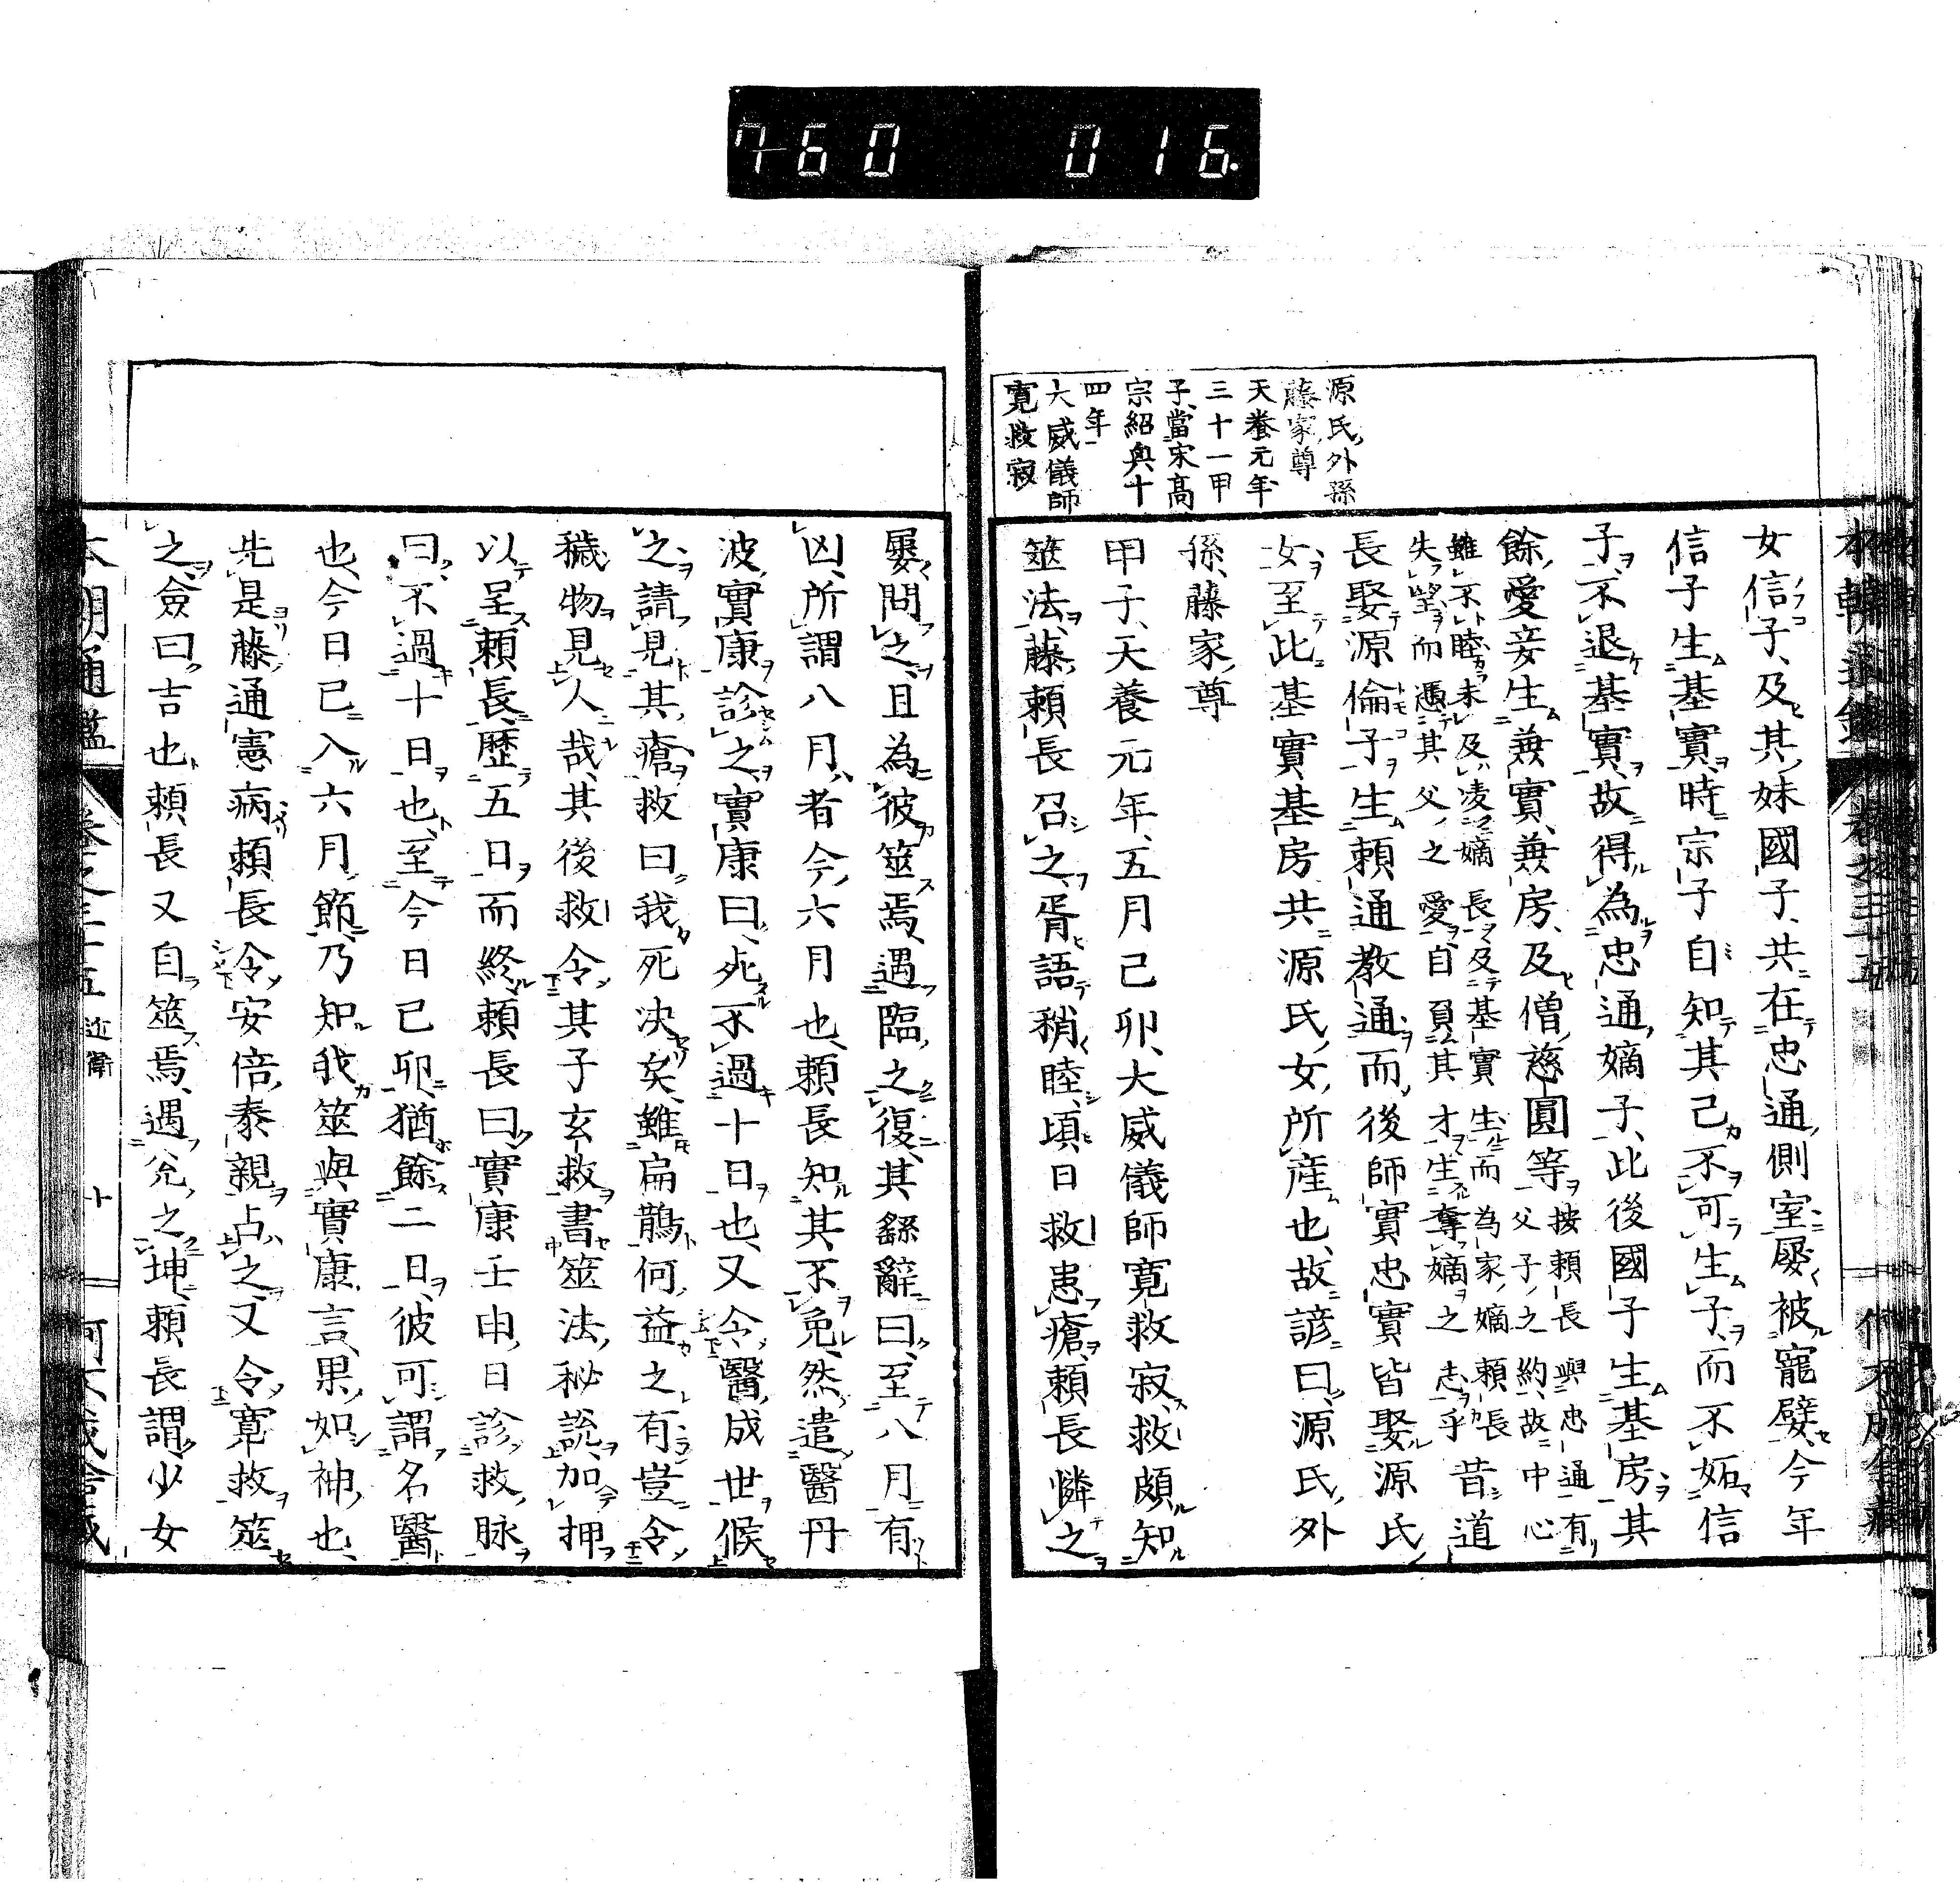 760 016
源氏外孫
藤家尊
天養元年
三十一甲
子當宋高
宗紹興十
四年
大威儀師
寛救寂
女信子、及其妹國子、共在忠通側室、屢被寵嬖、今年
信子生基實、時宗子自知其己不可生子、而不妬信
子、不退基實、故得為忠通嫡子、此後國子生基房、其
餘愛妾生兼實、兼房、及僧慈圓等、按頼長與忠通有
父子之約、故中心
雖不睦、未及凌嫡長、及基實生而為家嫡、頼長
失望、而憑其父之愛、自負其才、生奪嫡之志乎、昔道
長娶源倫子、生頼通教通、而後師實忠實皆娶源氏
女、至此基實基房共源氏女所産也、故諺曰、源氏外
孫、藤家尊
甲子、天養元年、五月己卯、大威儀師寛救寂、救頗知
筮法、藤頼長召之、胥語稍睦、頃日救患瘡、頼長憐之
屢問之、且為彼筮焉、遇臨之復、其繇辭曰、至八月有
凶、所謂八月者今六月也、頼長知其不免、然遣醫丹
波實康診之、實康曰、死不過十日也、又令醫成世候
之、請見其瘡、救曰、我死决矣、雖扁鵲何益之有、豈令
穢物見人哉、其後救令其子玄救書筮法秘説、加押
以呈頼長、歴五日而終、頼長曰、實康壬申日診救脉
曰、不過十日也、至今日己卯、猶餘二日、彼可謂名醫
也、今日已入六月節、乃知我筮與實康言、果如神也、
先是藤通憲病、頼長令安倍泰親占之、又令寛救筮
之、僉曰、吉也、頼長又自筮焉、遇兊之坤、頼長謂、少女
本朝通鑑 卷之三十五 近衛 十